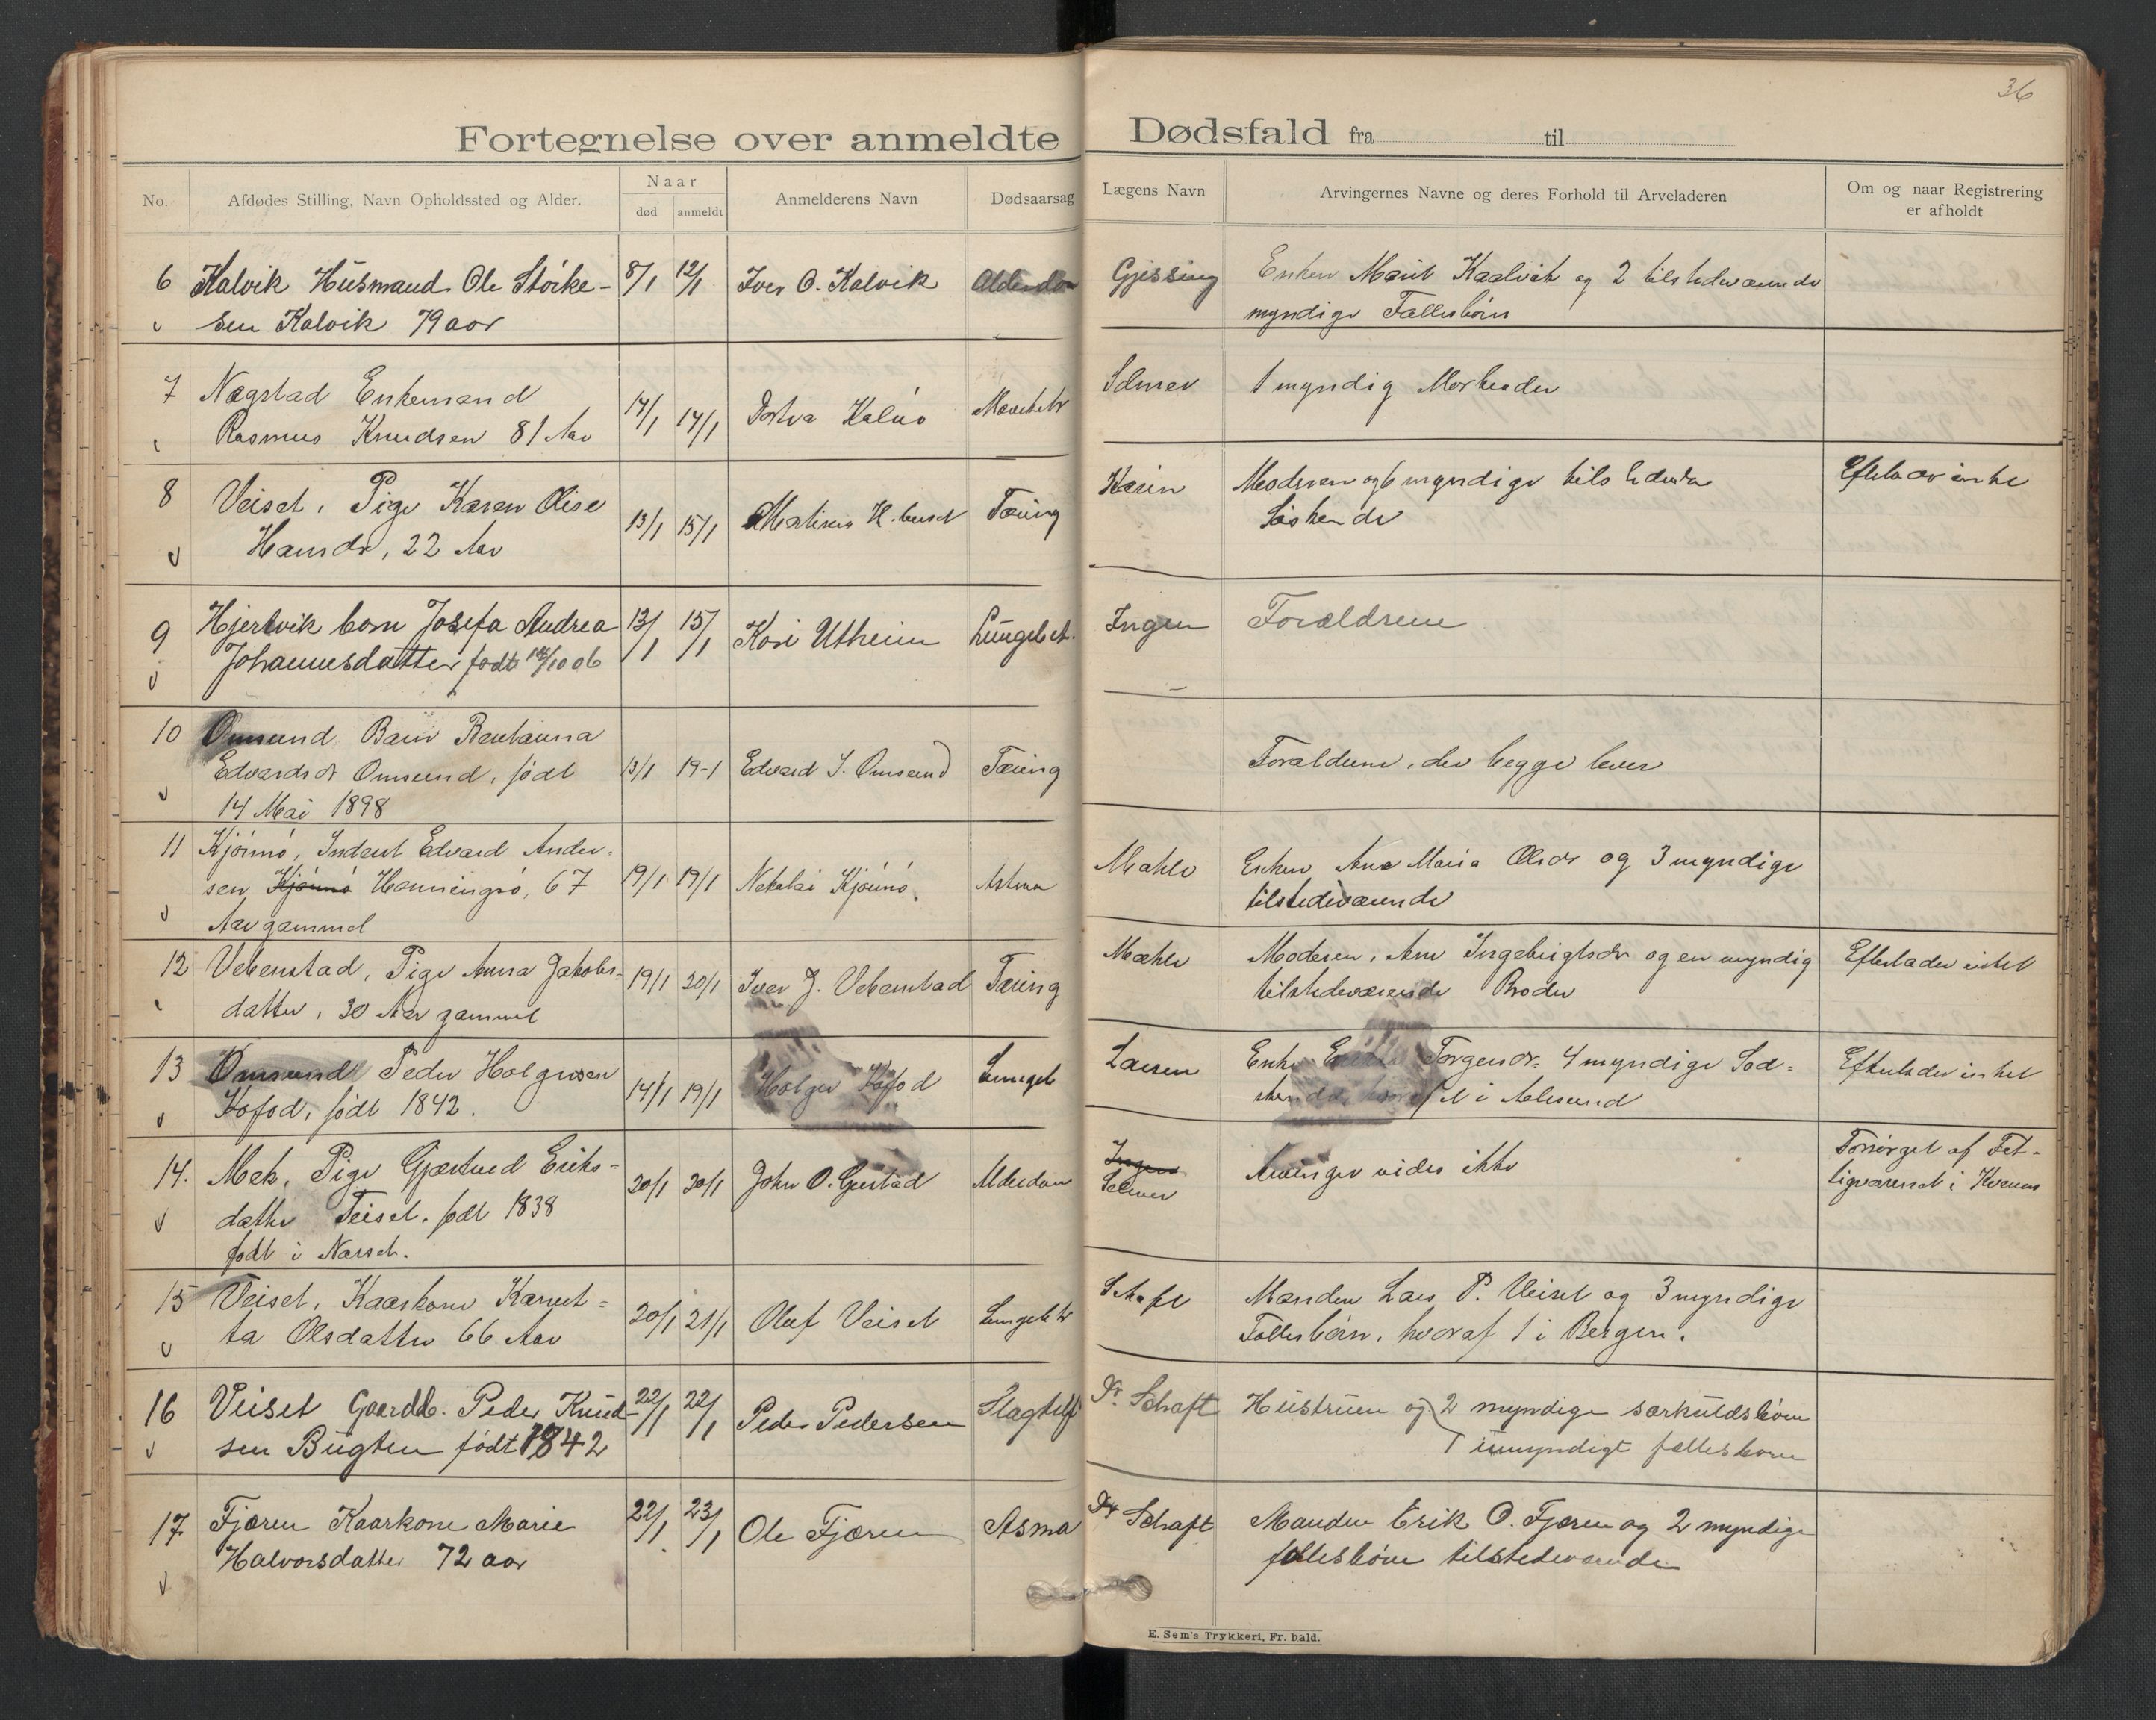 36
Fortegnelse over anmeldte Dødsfald fra til
No.
Afdødes Stilling, Navn Opholdssted og Alder.
Naar
død
anmeldt
Anmelderens Navn
Dødsaarsag
Lægens Navn
Arvingernes Navne og deres Forhold til Arveladeren
Om og naar Registrering
er afholdt
6 Kalvik Husmand Ole Størke- 8/1 12/1 Iver O. Kalvik Alderdom Gjessing Enken Marit Kaalvik og 2 tilstedeværende
sen Kalvik 79 aar myndige Fællesbørn
7 Nægstad Enkemand 14/1 14/1 Kalvø 1 myndig
Rasmus Knudsen 81 Aar
8 Veiset, Pige Karen Olise 13/1 15/1 Tæring Moderen og 6 myndige tilstedev Efterlader intet
Hansdr, 22 Aar Søskende
9 Hjertvik barn Josefa Andrea 13/1 15/1 Kari Utheim Lungebet. Ingen Forældrene
Johannesdatter født 14/10 06
10 Omsund Barn Bentanna 13/1 19-1 Edvard J. Omsund Tæring Forældrene, der begge lever
Edvardsdr Omsund, født
14 Mai 1898
11 Kjönnö, Inderst Edvard Ander- 19/1 19/1 Nekolai Kjönnö. Astma Mahle Enken Ane Maria Olsdr og 3 myndige
sen Kjönnö Honningsö, 67 tilstedeværende
Aar gammel
12 Vebenstad, Pige Anna Jakobs- 19/1 20/1 Iver J. Vebenstad Tæring Mæhle Moderen, Ane Ingebrigtsdr og en myndig Efterlader intet
datter, 30 Aar gammel tilstedeværende Broder
13 Omsund Peder Holgersen 14/1 19/1 Holger Kofod Lungeb Larsen Enke Torgersdr. 4 myndige Sød- Efterlader intet
Kofod, født 1842. skende, hvoraf 1 i Aalesund
14. Mek, Pige Gjertrud Eriks- 20/1 20/1 John O. Gustad Alderdom Ingen Arvinger vides ikke Forsørget af Fat-
datter Teiset, født 1838 Selmer tigvæsenet i Kvernes
født i Næsset.
15 Veiset, Kaarkone Karnet- 20/1 21/1 Oluf Veiset Lungebet Schaft Manden Lars P. Veiset og 3 myndige
ta Olsdatter 66 Aar Fællesbörn, hvoraf 1 i Bergen.
16 Veiset Gaardb. Peder Knud- 22/1 22/1 Peder Pedersen Slagtilf Dr. Schaft Hustruen og 2 myndige særkuldsbörn
sen Bugten født 1842 1 umyndigt fællesbarn
17 Fjæren Kaarkone Marie 22/1 23/1 Ole Fjæren Asma Dr Schaft Manden Erik O. Fjæren og 2 myndige
Halvorsdatter 72 aar fællesbörn tilstedeværende
E. Sem's Trykkeri, Fr. hald.